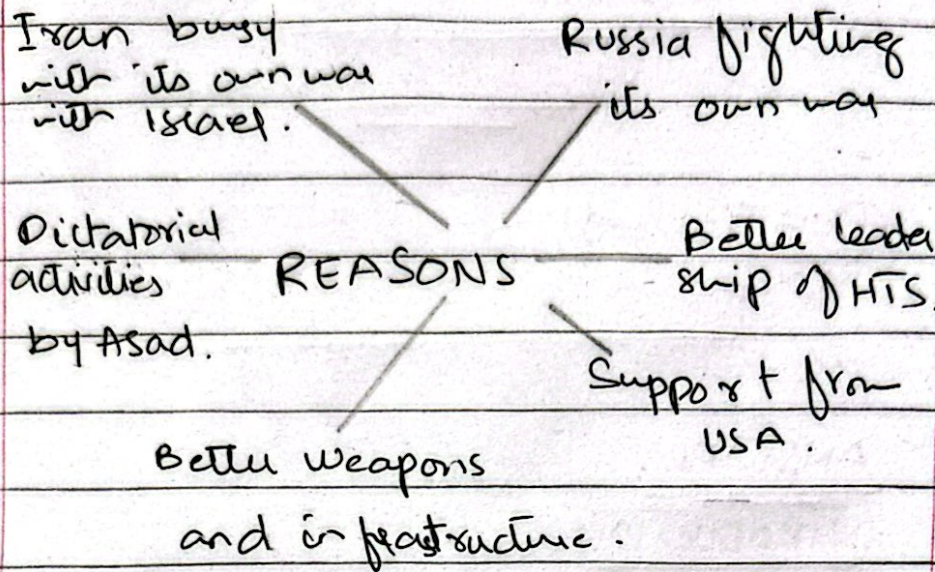 Iran busy
with its own war
with Israel.
Russia fighting
its own war
Dictatorial
activities
by Asad.
REASONS
Better leader
ship of HTS.
Support from
USA.
Better weapons
and infrastructure.